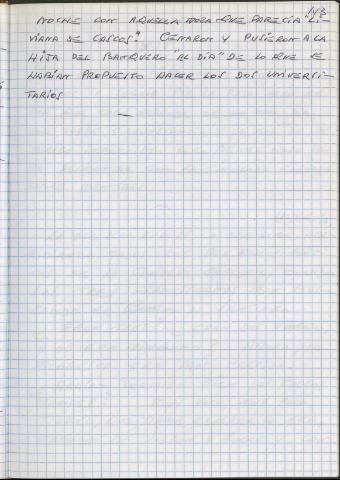 NOCHE CON AQUELLA MORA QUE PARECIA "LI-
VIANA DE CASCOS". CENARON Y PUSIERON A LA
HIJA DEL BARQUERO "AL DÍA" DE LO QUE SE
HABIAN PROPUESTO HACER LOS DOS UNIVERSI-
TARIOS